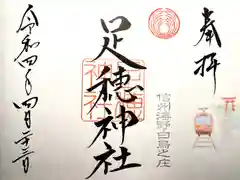 奉拝
信州海野白鳥之庄
足穂神社
令和四年四月二十二日